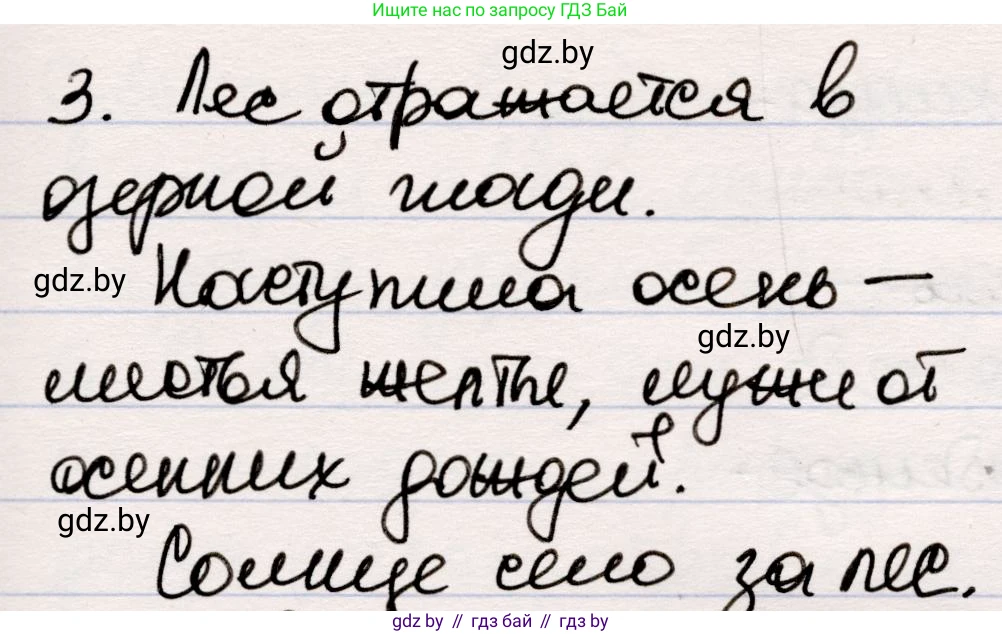 Ищите нас по запросу ГДЗ Бай
gdz.by
3. Лес отражается в
озерной глади.
gdz.by
Наступила осень —
gdz.by
листья желты, лужи от
осенних дождей.
gdz.by
Солнце село за лес.
gdz by // гдз бай // gdz by